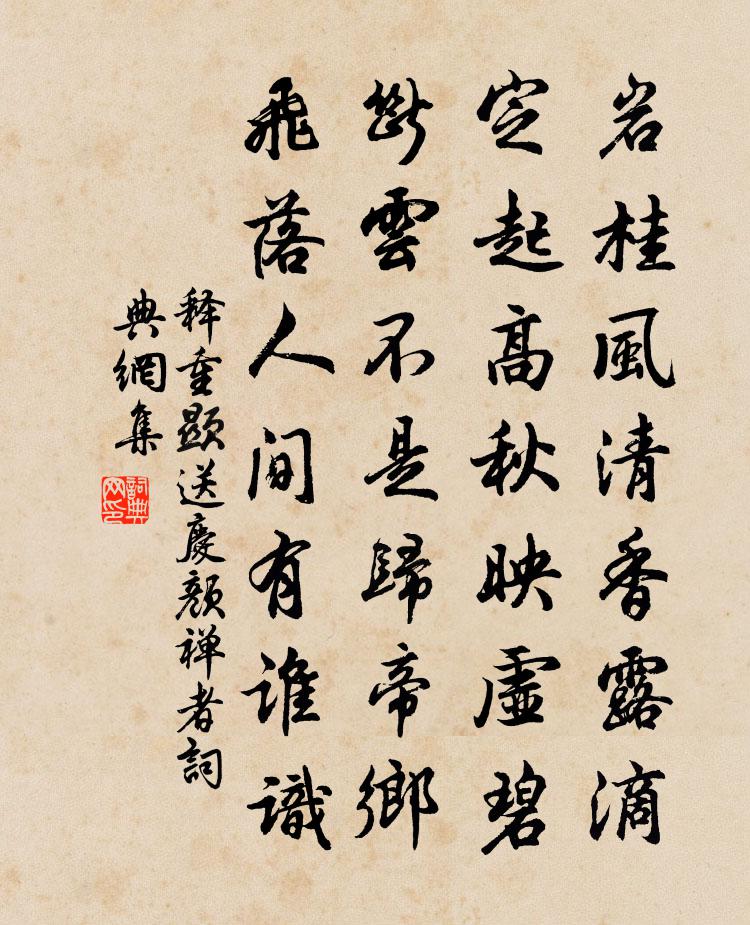 岩桂風清香露滴
定起高秋映虛碧
斷雲不是歸帝鄉
飛落人间有谁識
释重顯送慶顏禅者詞
典網集
詞典网印